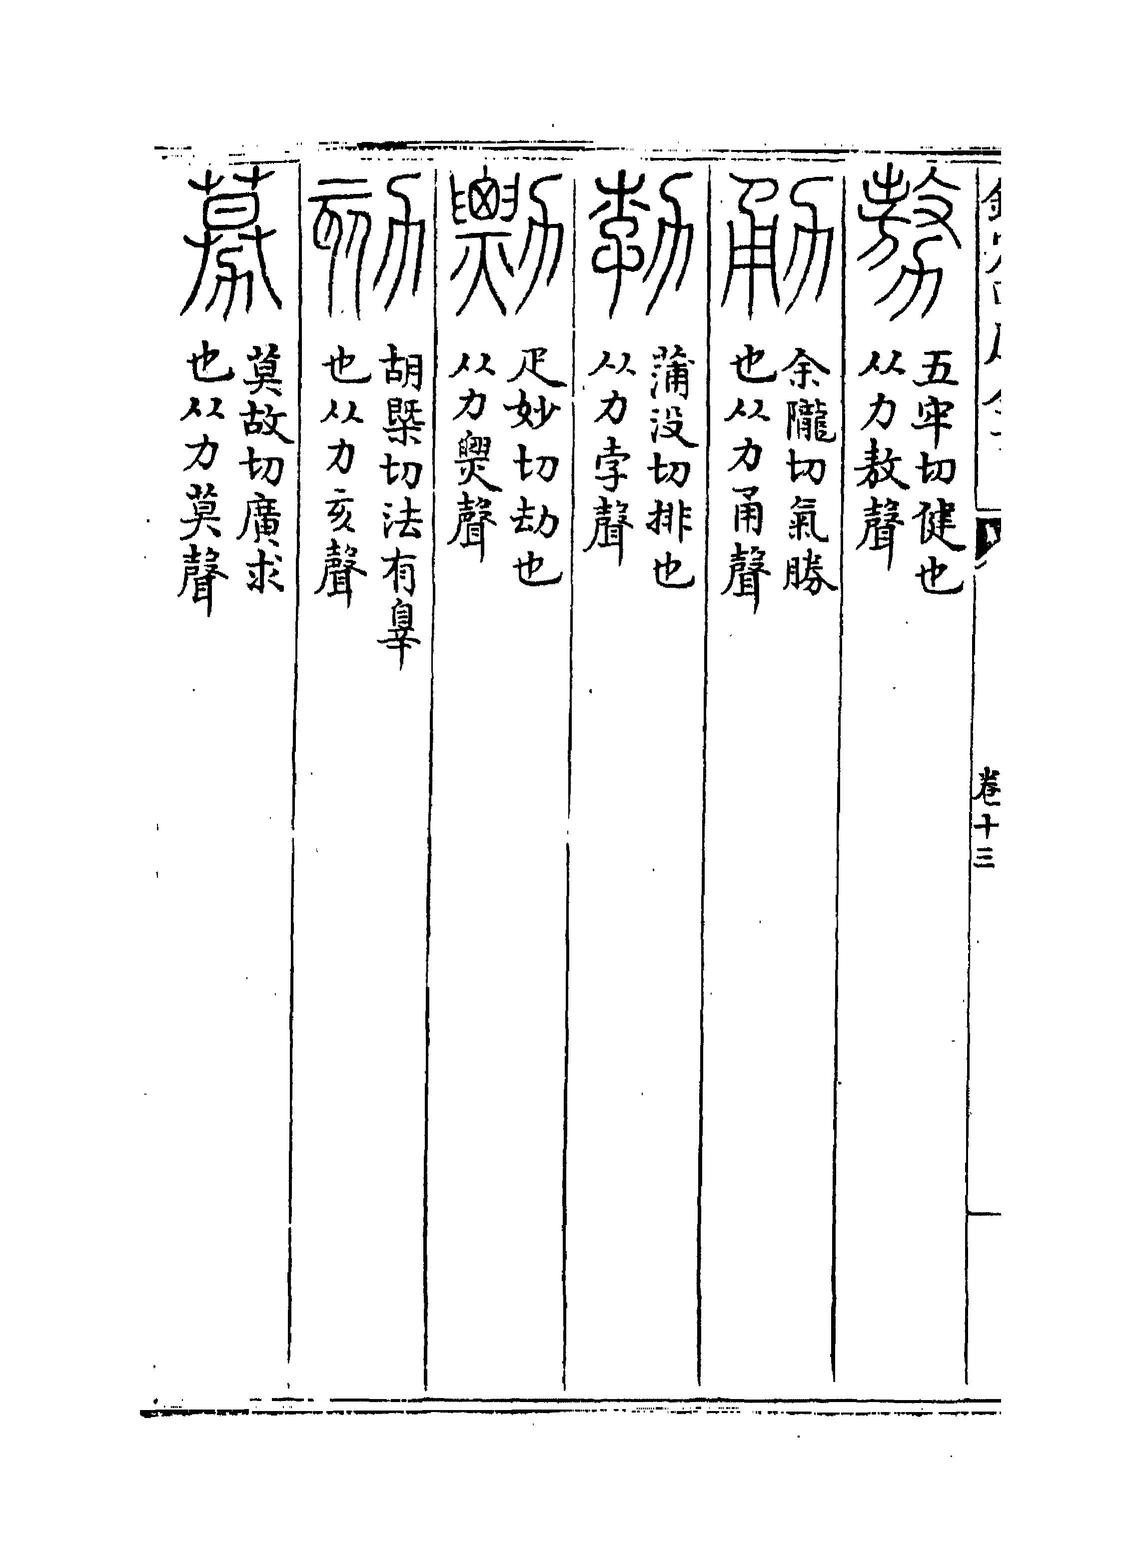 卷十三
勢 五牢切健也
从力敖聲
勈 余隴切氣勝
也从力甬聲
勃 蒲没切排也
从力孛聲
勡 疋妙切劫也
从力㶾聲
劾 胡槩切法有辠
也从力亥聲
募 莫故切廣求
也从力莫聲